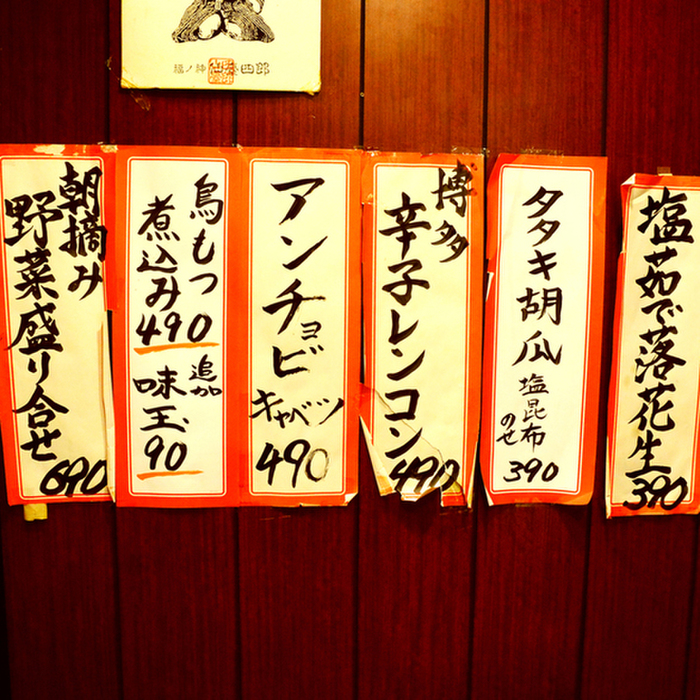 福ノ神 四郎
塩茹で落花生
390
タタキ胡瓜
塩昆布
のせ
390
博多
辛子レンコン
490
アンチョビ
キャベツ
490
鳥もつ
煮込み
490
追加
味玉
90
朝摘み
野菜盛り合せ
690